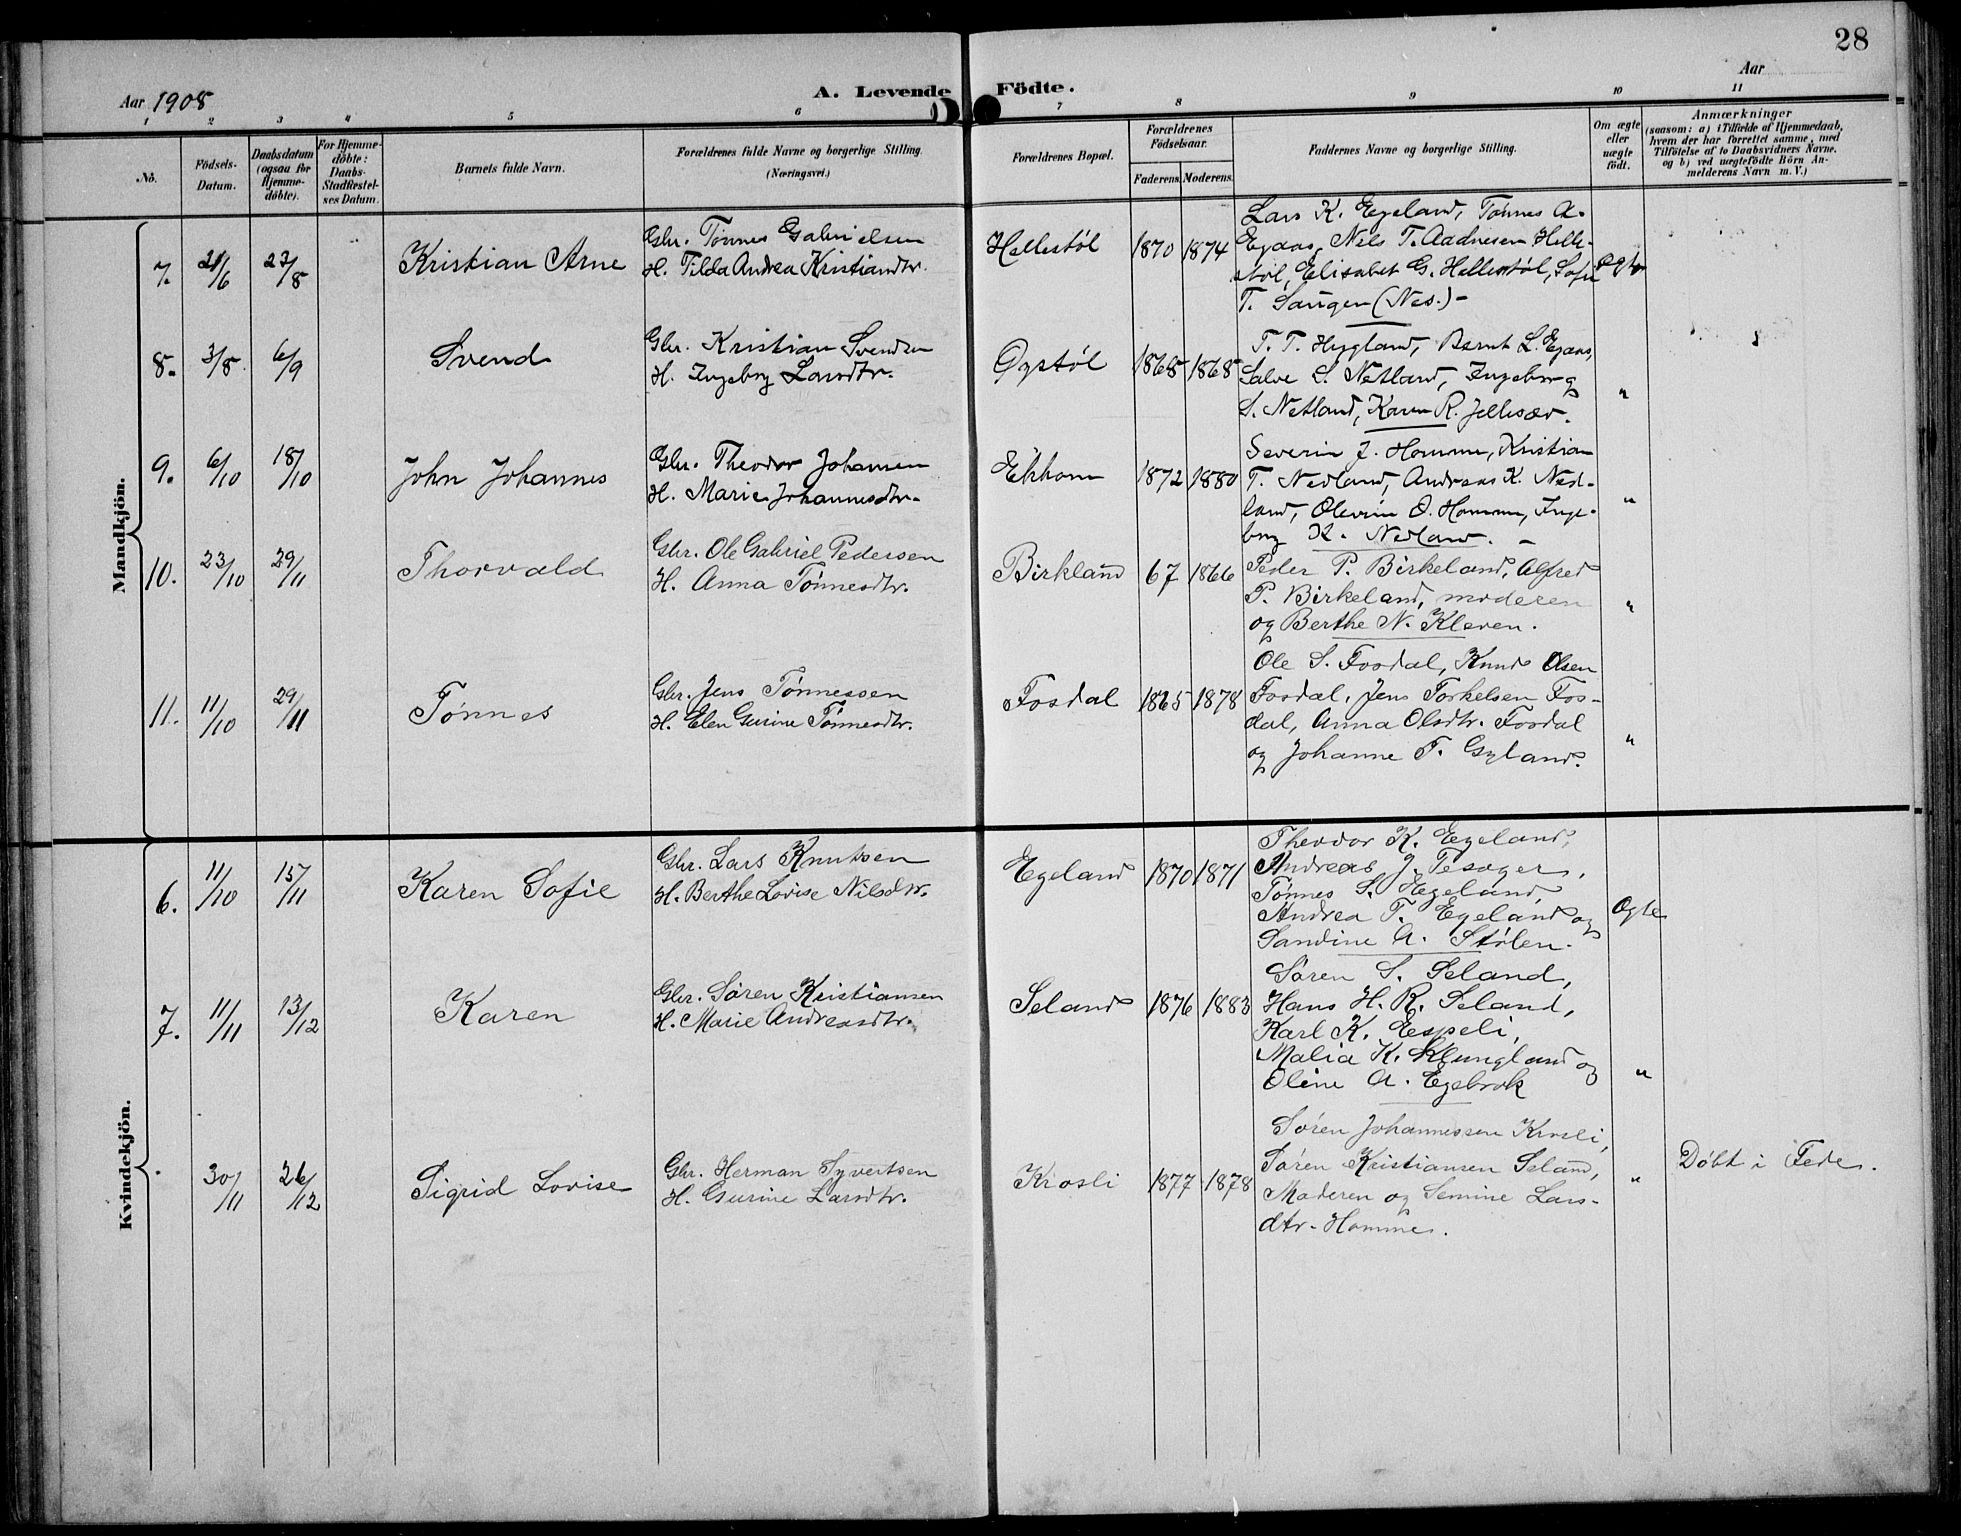 28
Aar 1908
A. Levende Födte.
Aar
1 2 3 4 5 6 7 8 9 10 11
No.
Födsels-
Datum.
Daabsdatum
(ogsaa for
Hjemme-
döbte).
For Hjemme-
döbte:
Daabs-
Stadfæstel-
ses Datum.
Barnets fulde Navn.
Forældrenes fulde Navne og borgerlige Stilling.
(Næringsvei.)
Forældrenes Bopæl.
Forældrenes
Födselsaar.
Faderens.
Moderens.
Faddernes Navne og borgerlige Stilling.
Om ægte
eller
uægte
födt.
Anmærkninger
(saasom: a) i Tilfælde af Hjemmedaab,
hvem der har forrettet samme, med
Tilföielse af to Daabsvidners Navne,
og b) ved uægtefödte Börn An-
melderens Navn m. V.)
Mandkjön.
7. 21/6 23/8 Kristian Arne
Gbr. Tønnes Gabrielsen
H. Tilda Andrea Kristiandtr.
Hellestøl 1870 1874
Lars K. Egeland, Tønnes A.
Egaas, Nils T. Aadnesen Helle-
støl, Elisabet G. Hellestøl, Sofie
T. Saugen (Nes.) -
Ægte
8. 3/8 6/9 Svend
Gbr. Kristian Svendsen
H. Ingeborg Larsdtr.
Øystøl 1868 1868
T. T. Hugland, Bernt L. Egaas,
Salve S. Netland, Ingeborg
S. Netland, Karen R.
"
9. 6/10 18/10 John Johannes
Gbr. Theodor Johansen
H. Marie Johannesdtr.
Eikhom 1872 1880
Severin J. Homme, Kristian
T. Nedland, Andreas K. Ned-
land, Olevine O. Homme, Inge-
borg K. Nedland. -
"
10. 23/10 29/11 Thorvald
Gbr. Ole Gabriel Pedersen
H. Anna Tønnesdtr.
Birkland 67 1866
Peder P. Birkeland, Alfred
P. Birkeland, moderen
og Berthe N. Kleven.
"
11. 11/10 29/11 Tønnes
Gbr. Jens Tønnessen
H. Elen Gurine Tønnesdtr.
Fosdal 1865 1878
Ole S. Fosdal, Knud Olsen
Fosdal, Jens Torkelsen Fos-
dal, Anna Olsdtr. Fosdal
og Johanne T. Gyland.
"
Kvindekjön.
6. 11/10 15/11 Karen Sofie
Gbr. Lars Knutsen
H. Berthe Lovise Nilsdtr.
Egeland 1870 1871
Theodor K. Egeland,
Andreas J. Tesager,
Tønnes S. Egeland,
Andrea T. Egeland og
Sandine A. Stølen.
Ægte
7. 11/11 13/12 Karen
Gbr. Søren Kristiansen
H. Marie Andreasdtr.
Seland 1876 1883
Søren S. Seland,
Hans H. R. Seland,
Karl K. Espeli,
Malia K. Klungland og
Oline A. Egebrok
"
30/11 26/12 Sigrid Lovise
Gbr. Herman Syvertsen
H. Gurine Larsdtr.
Krosli 1877 1878
Søren Johannessen Krosli,
Søren Kristiansen Seland,
Moderen og Semine Lars-
dtr. Homme.
"
Døbt i Fede.